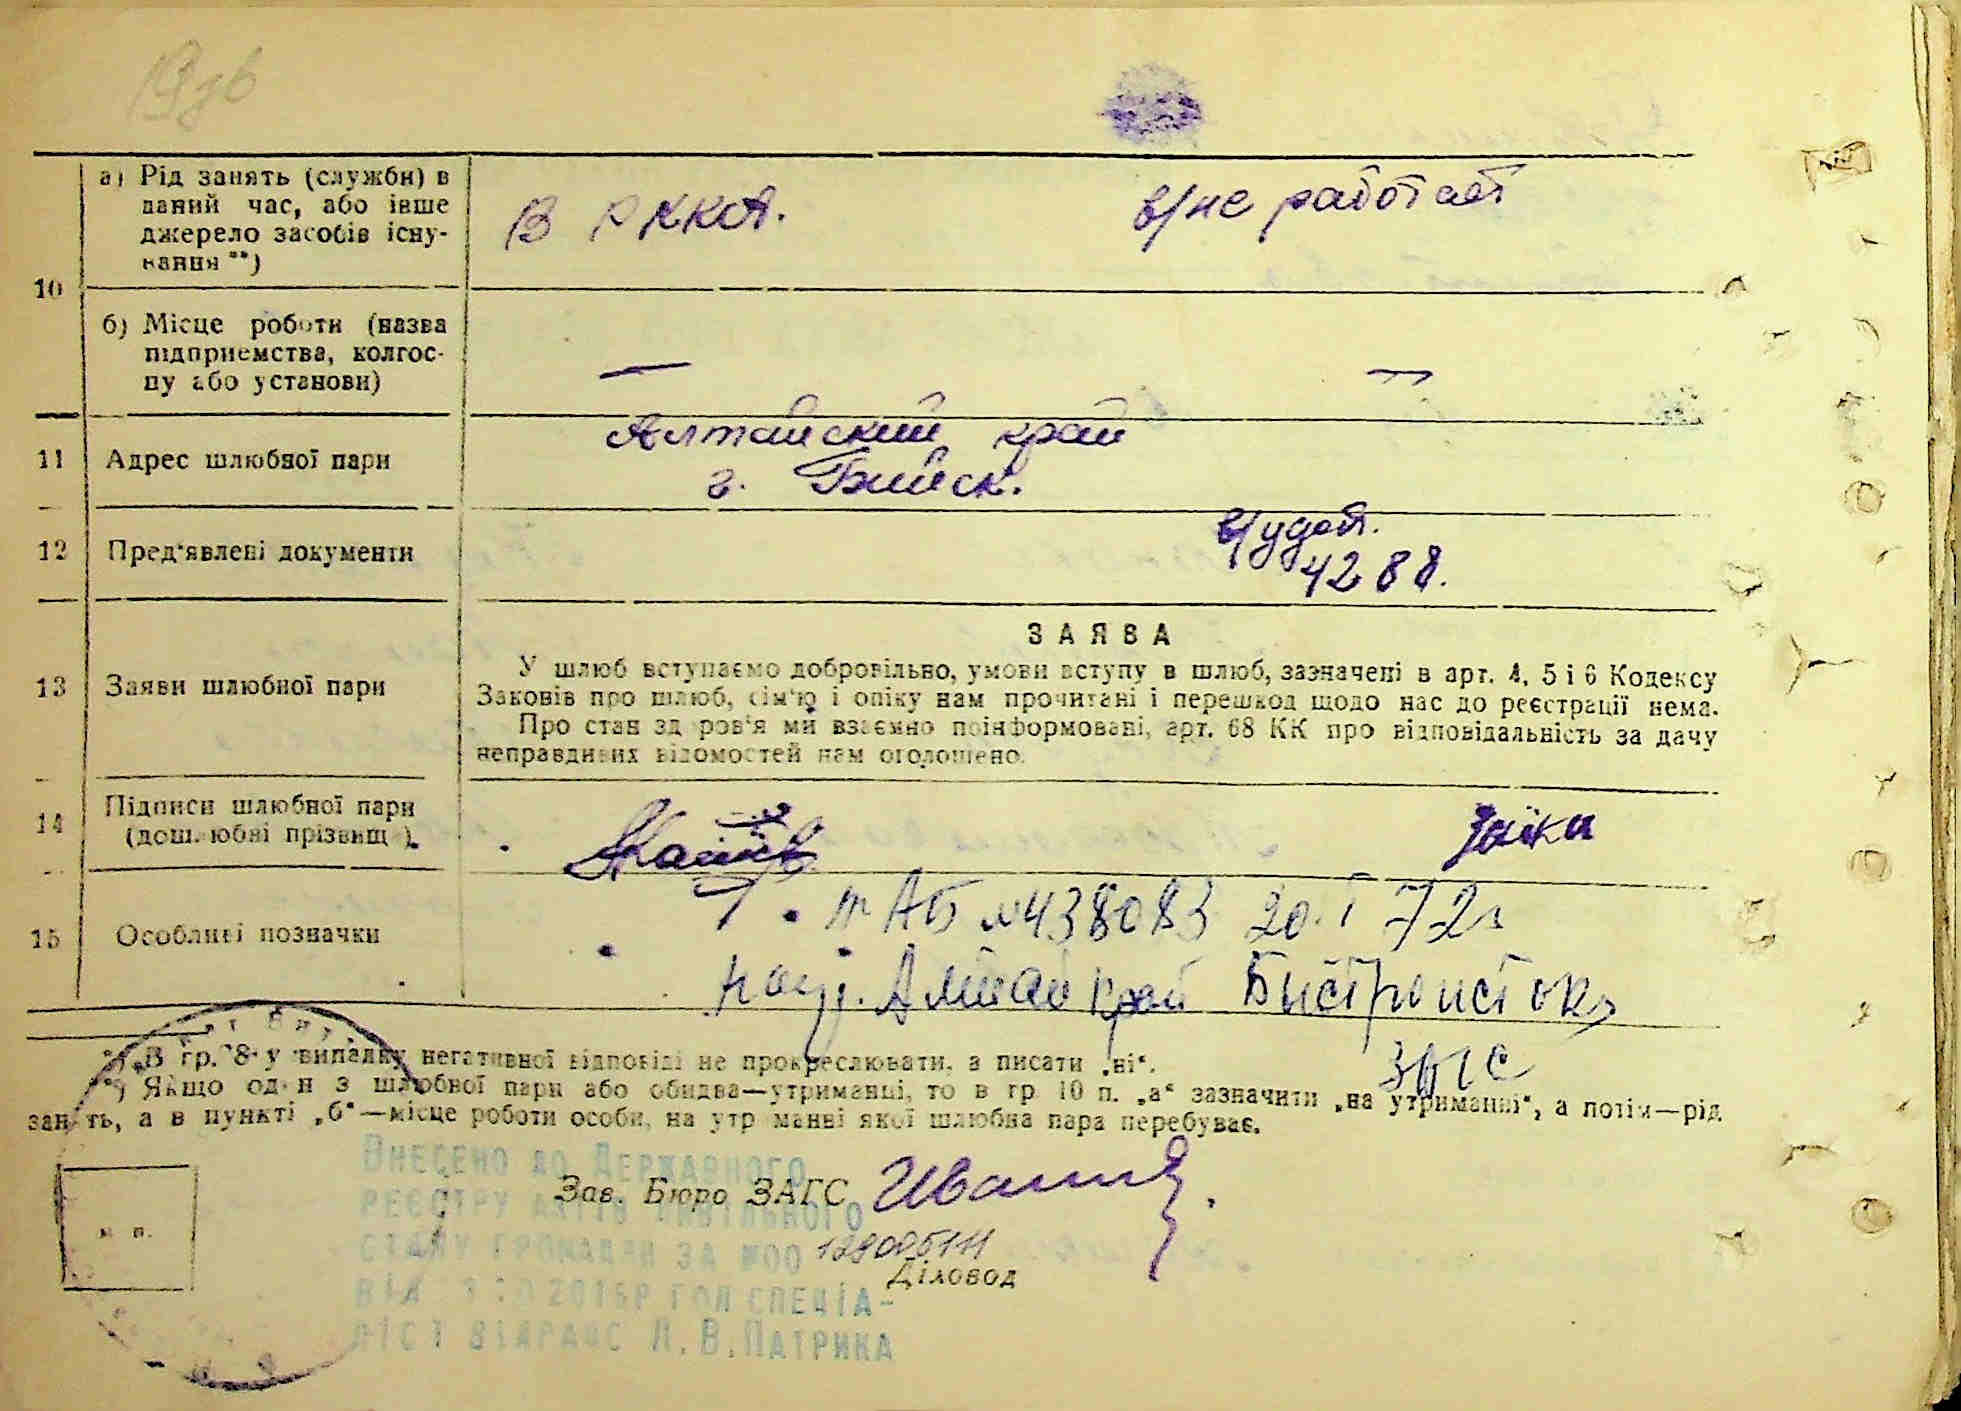 10
а) Рід занять (службн) в
даний час, або інше
джерело засобів існу-
вання **)
В РККА.
в/не работает
б) Місце роботи (назва
підприємства, колгос-
пу або установи)
— —
11 Адрес шлюбної пари
Алтайский край
г. Бийск.
12 Пред'явлені документи
в/удост.
4288.
13 Заяви шлюбної пари
ЗАЯВА
У шлюб вступаємо добровільно, умови вступу в шлюб, зазначені в арт. 4, 5 і 6 Кодексу
Законів про шлюб, сім'ю і опіку нам прочитані і перешкод щодо нас до реєстрації нема.
Про стан здоров'я ми взаємно поінформовані, арт. 68 КК про відповідальність за дачу
неправдивих відомостей нам оголошено.
14 Підписи шлюбної пари
(дошлюбні прізвищ).
Заїка
15 Особливі позначки
АБ №438083 20. I 72г
Алтай край Быстроисток
ЗАГС
*) В гр. 8 у випадку негативної відповіді не прокреслювати, а писати „ні“.
**) Якщо один з шлюбної пари або обидва—утриманці, то в гр 10 п. „а“ зазначити „на утриманні“, а потім—рід
занять, а в пункті „б“—місце роботи особи, на утриманні якої шлюбна пара перебуває.
м. п.
Зав. Бюро ЗАГС
Діловод
Внесено до Державного
реєстру актів цивільного
стану громадян за №00
від 2016р гол специа-
ліст відрацс Л.В.Патрика